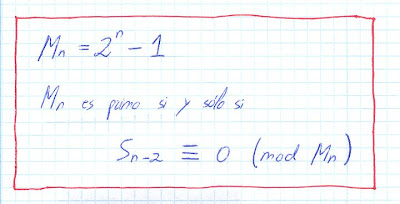 Mₙ = 2ⁿ - 1
Mₙ es primo si y sólo si
Sₙ₋₂ ≡ 0 (mod Mₙ)